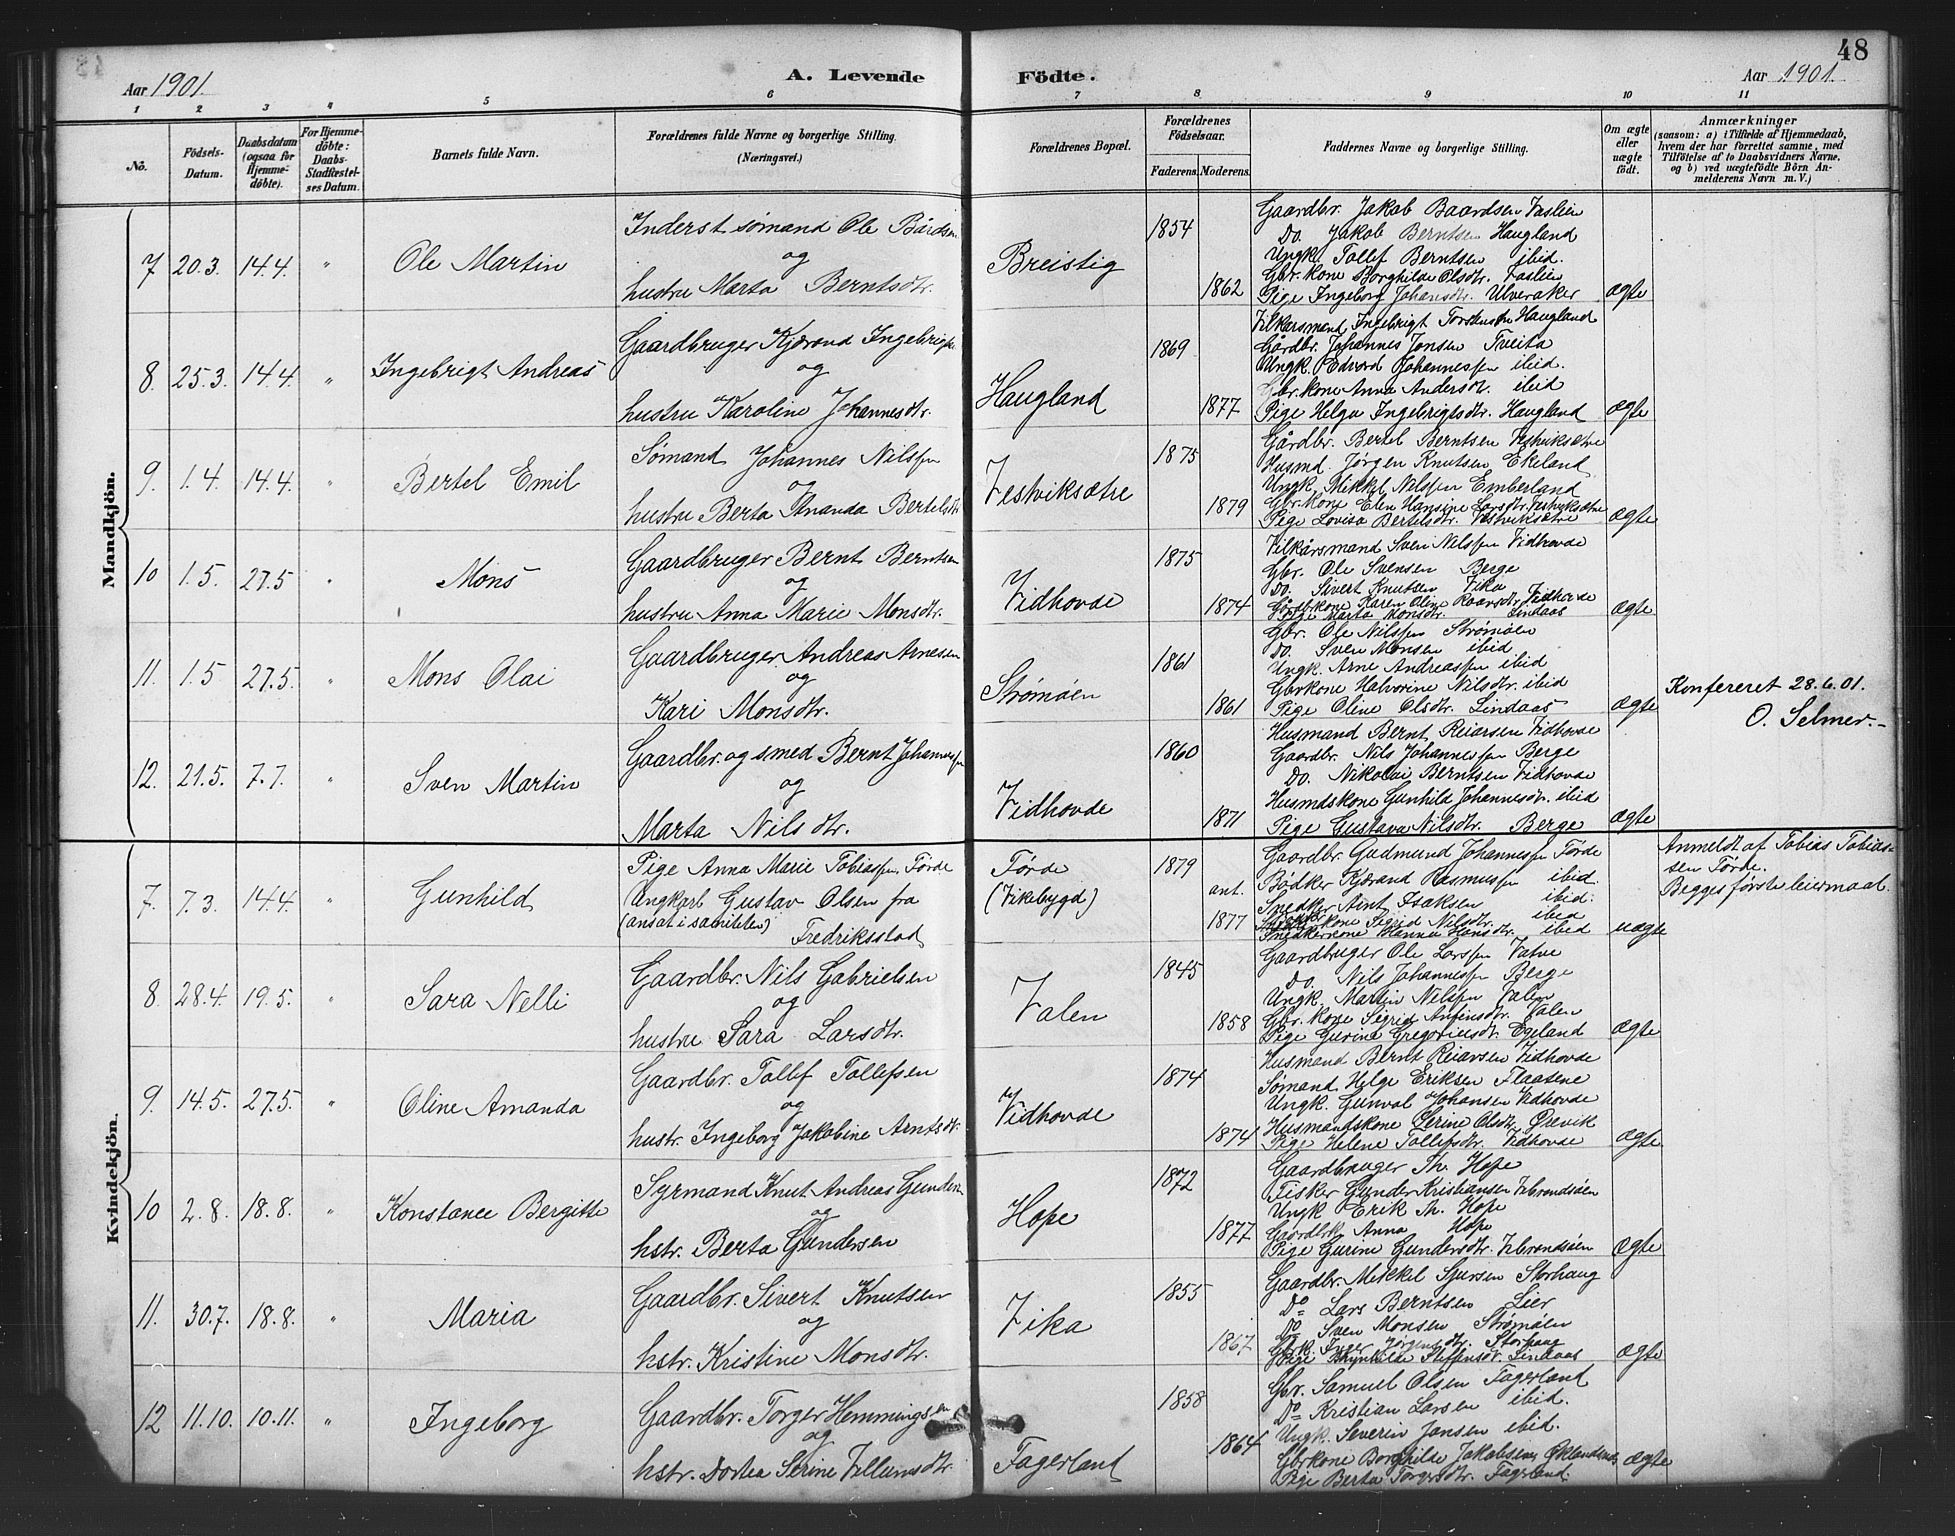 48
Aar 1901.
A. Levende Födte.
Aar 1901.
1 2 3 4 5 6 7 8 9 10 11
No.
Födsels-Datum.
Daabsdatum (ogsaa for Hjemme-döbte).
For Hjemme-döbte: Daabs-Stadfæstel-ses Datum.
Barnets fulde Navn.
Forældrenes fulde Navne og borgerlige Stilling. (Næringsvei.)
Forældrenes Bopæl.
Forældrenes Födselsaar.
Faderens. Moderens.
Faddernes Navne og borgerlige Stilling.
Om ægte eller uægte födt.
Anmærkninger
(saasom: a) i Tilfælde af Hjemmedaab, hvem der har forrettet samme, med Tilföielse af to Daabsvidners Navne, og b) ved uægtefödte Börn An-melderens Navn m. V.)
Mandkjön.
7 20.3. 14.4. " Ole Martin
Inderst sømand Ole Bårdsen
og
hustru Marta Berntsdtr.
Breistig
1854
1862
Gaardbr. Jakob Baardsen Vaslien
Do. Jakob Berntsen Haugland
Ungk. Tollef Berntsen ibid.
Gbr.kone Borghilde Olsdtr. Vaslien
Pige Ingeborg Johansdtr. Ulveraker
ægte
8. 25.3. 14.4. " Ingebrigt Andreas
Gaardbruger Kjærand Ingebrigts.
og
hustru Karoline Johannesdtr.
Haugland
1869
1877
Vilkarsmand Ingebrigt Torstensen Haugland
Gårdbr. Johannes Jonsen Tveita
Ungk. Edvard Johannessen ibid.
Gbr.kone Anna Andersdt. ibid
Pige Helga Ingebrigtsdtr. Haugland
ægte
9. 1.4. 14.4. " Bertel Emil
Sømand Johannes Nilssen
og
hustru Berta Amanda Bertelsdt.
Vestviksætre
1875
1879
Gårdbr. Bertel Berntsen Vestviksætre
Husmd. Jørgen Knutsen Ekeland
Ungk. Mikkel Nilssen Emberland
Gbr.kone Elen Hansine Larsdtr. Vestviksætre
Pige Lovisa Bertelsdtr. Vestviksætre
ægte
10 1.5. 27.5 " Mons
Gaardbruger Bernt Berntsen
og
hustru Anna Marie Monsdtr.
Vidhovde
1875
1874
Vilkårsmand Sven Nilssen Vidhovde
Gbr. Ole Svensen Berge
Do. Sivert Knutsen Vika
Gårdbkone Karen Oline Roarsdtr. Vidhovde
Pige Marta Monsdtr. Lindaas
ægte
11. 1.5 27.5. " Mons Olai
Gaardbruger Andreas Arnesen
og
Kari Monsdtr.
Strømøen
1861
1861
Gbr. Ole Nilssen Strømøen
Do. Sven Monsen ibid
Ungk. Arne Andreassen ibid
Gbrkone Halvorine Nilsdtr. ibid
Pige Oline Olsdtr. Lindaas
ægte
Konfereret 28.6.01.
O. Selmer.
12. 21.5. 7.7. " Sven Martin
Gaardbr. og smed Bernt Johannessen
og
Marta Nilsdtr.
Vidhovde
1860
1871
Husmand Bernt Reiarsen Vidhovde
Gaardbr. Nils Johannessen Berge
Do. Nikolai Berntsen Vidhovde
Husmdskone Gunhild Johannesdtr. ibid
Pige Gustava Nilsdtr. Berge
ægte
Kvindekjön.
7. 7.3. 14.4. " Gunhild
Pige Anna Marie Tobiassen Førde
Ungkarl Gustav Olsen fra
(ansat i saniteten) Fredriksstad
Førde
(Vikebygd)
1879
ant.
1877
Gaardbr. Gudmund Johannessen Førde
Bødker Kjærand Rasmussen ibid.
Snedker Arnt Isaksen ibid.
kone Sigrid Nilsdtr. ibid
Snedkerkone Hanna Hansdtr. ibid
uægte
Anmeldt af Tobias Tobias-
sen Førde.
Begges første leiermaal.
8. 28.4. 19.5. " Sara Nelli
Gaardbr. Nils Gabrielsen
og
hustru Sara Larsdtr.
Valen
1845
1858
Gaardbruger Ole Larssen Vatne
Do. Nils Johannessen Berge
Ungk. Martin Nilssen Valen
Gbr. kone Sigrid Anfinsdtr. Valen
Pige Gurina Gregoriusdt. Egeland
ægte
9. 14.5. 27.5. " Oline Amanda
Gaardbr. Tollef Tollefsen
og
hustr. Ingeborg Jakobine Arntsdtr.
Vidhovde
1874
1874
Husmand Bernt Reiarsen Vidhovde
Sømand Helge Eriksen Flaatene
Ungk. Gunvald Johansen Vidhovde
Husmandskone Serine Olsdtr. Ørevik
Pige Helene Tollefsdtr. Vidhovde
ægte
10 2.8. 18.8. " Konstance Bergitte
Styrmand Knut Andreas Gundersen
og
hstr. Berta Gundersen
Hope
1872
1877
Gaardbruger Th. Hope
Fisker Gunder Kristiansen Vibrandsøen
Ungk. Erik Th. Hope
Gaardbrk. Anna Hope
Pige Gurine Gundersdtr. Vibrandsøen
ægte
11. 30.7. 18.8. " Maria
Gaardbr. Sivert Knutsen
og
hstr. Kristine Monsdtr.
Vika
1855
1867
Gaardbr. Mikkel Sjursen Storhaug
Do Lars Berntsen Lier
Do Sven Monsen Strømøen
Gbrk. Inger Jørgensdtr. Storhaug
Pige Brynhilde Steffensdt. Lindaas
ægte
12 11.10. 10.11. " Ingeborg
Gaardbr. Torger Hemmingsen
og
hstr. Dortea Serine Villumsdtr.
Fagerland
1858
1864
Gbr. Samuel Olsen Fagerland
Do Kristian Larsen ibid.
Ungk. Severin Jansen ibid.
Gbrkone Borghilde Jakobsen
Pige Berta Torgersdtr. Fagerland.
ægte